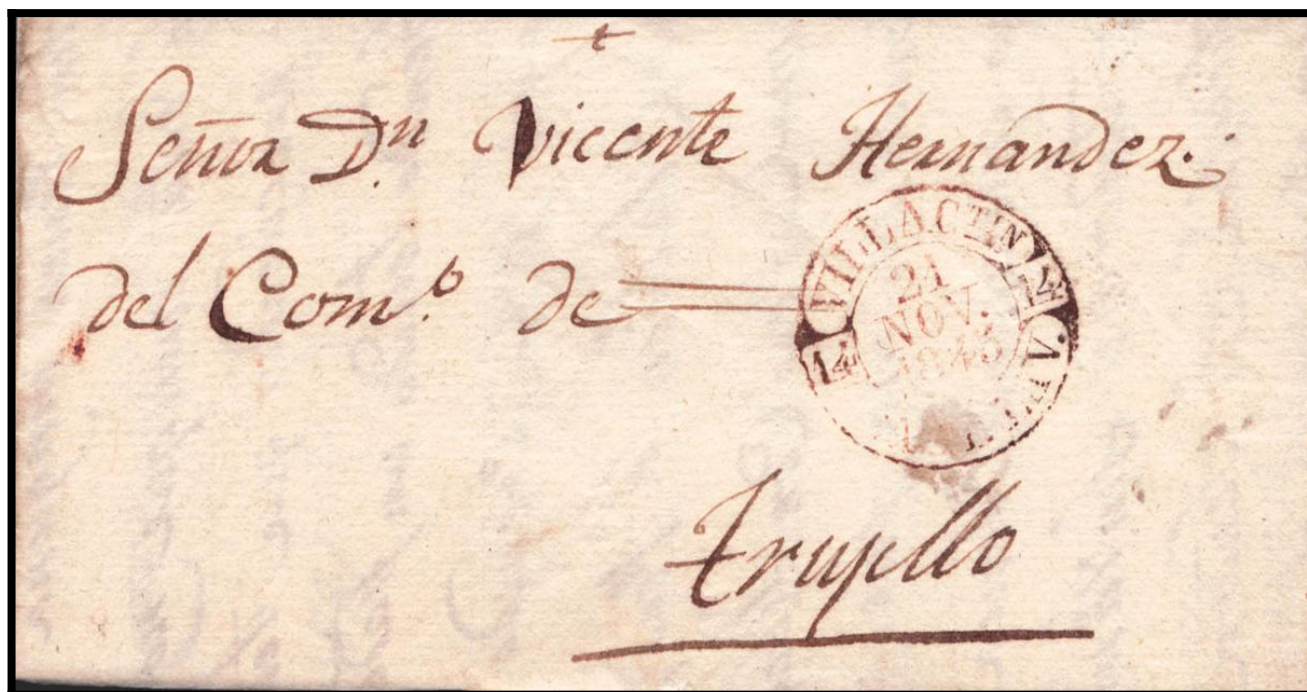 +
Señor Dn. Vicente Hernandez.
del Com.º de
VILLACTIN
14
21
NOV.
1845
14
Trujillo